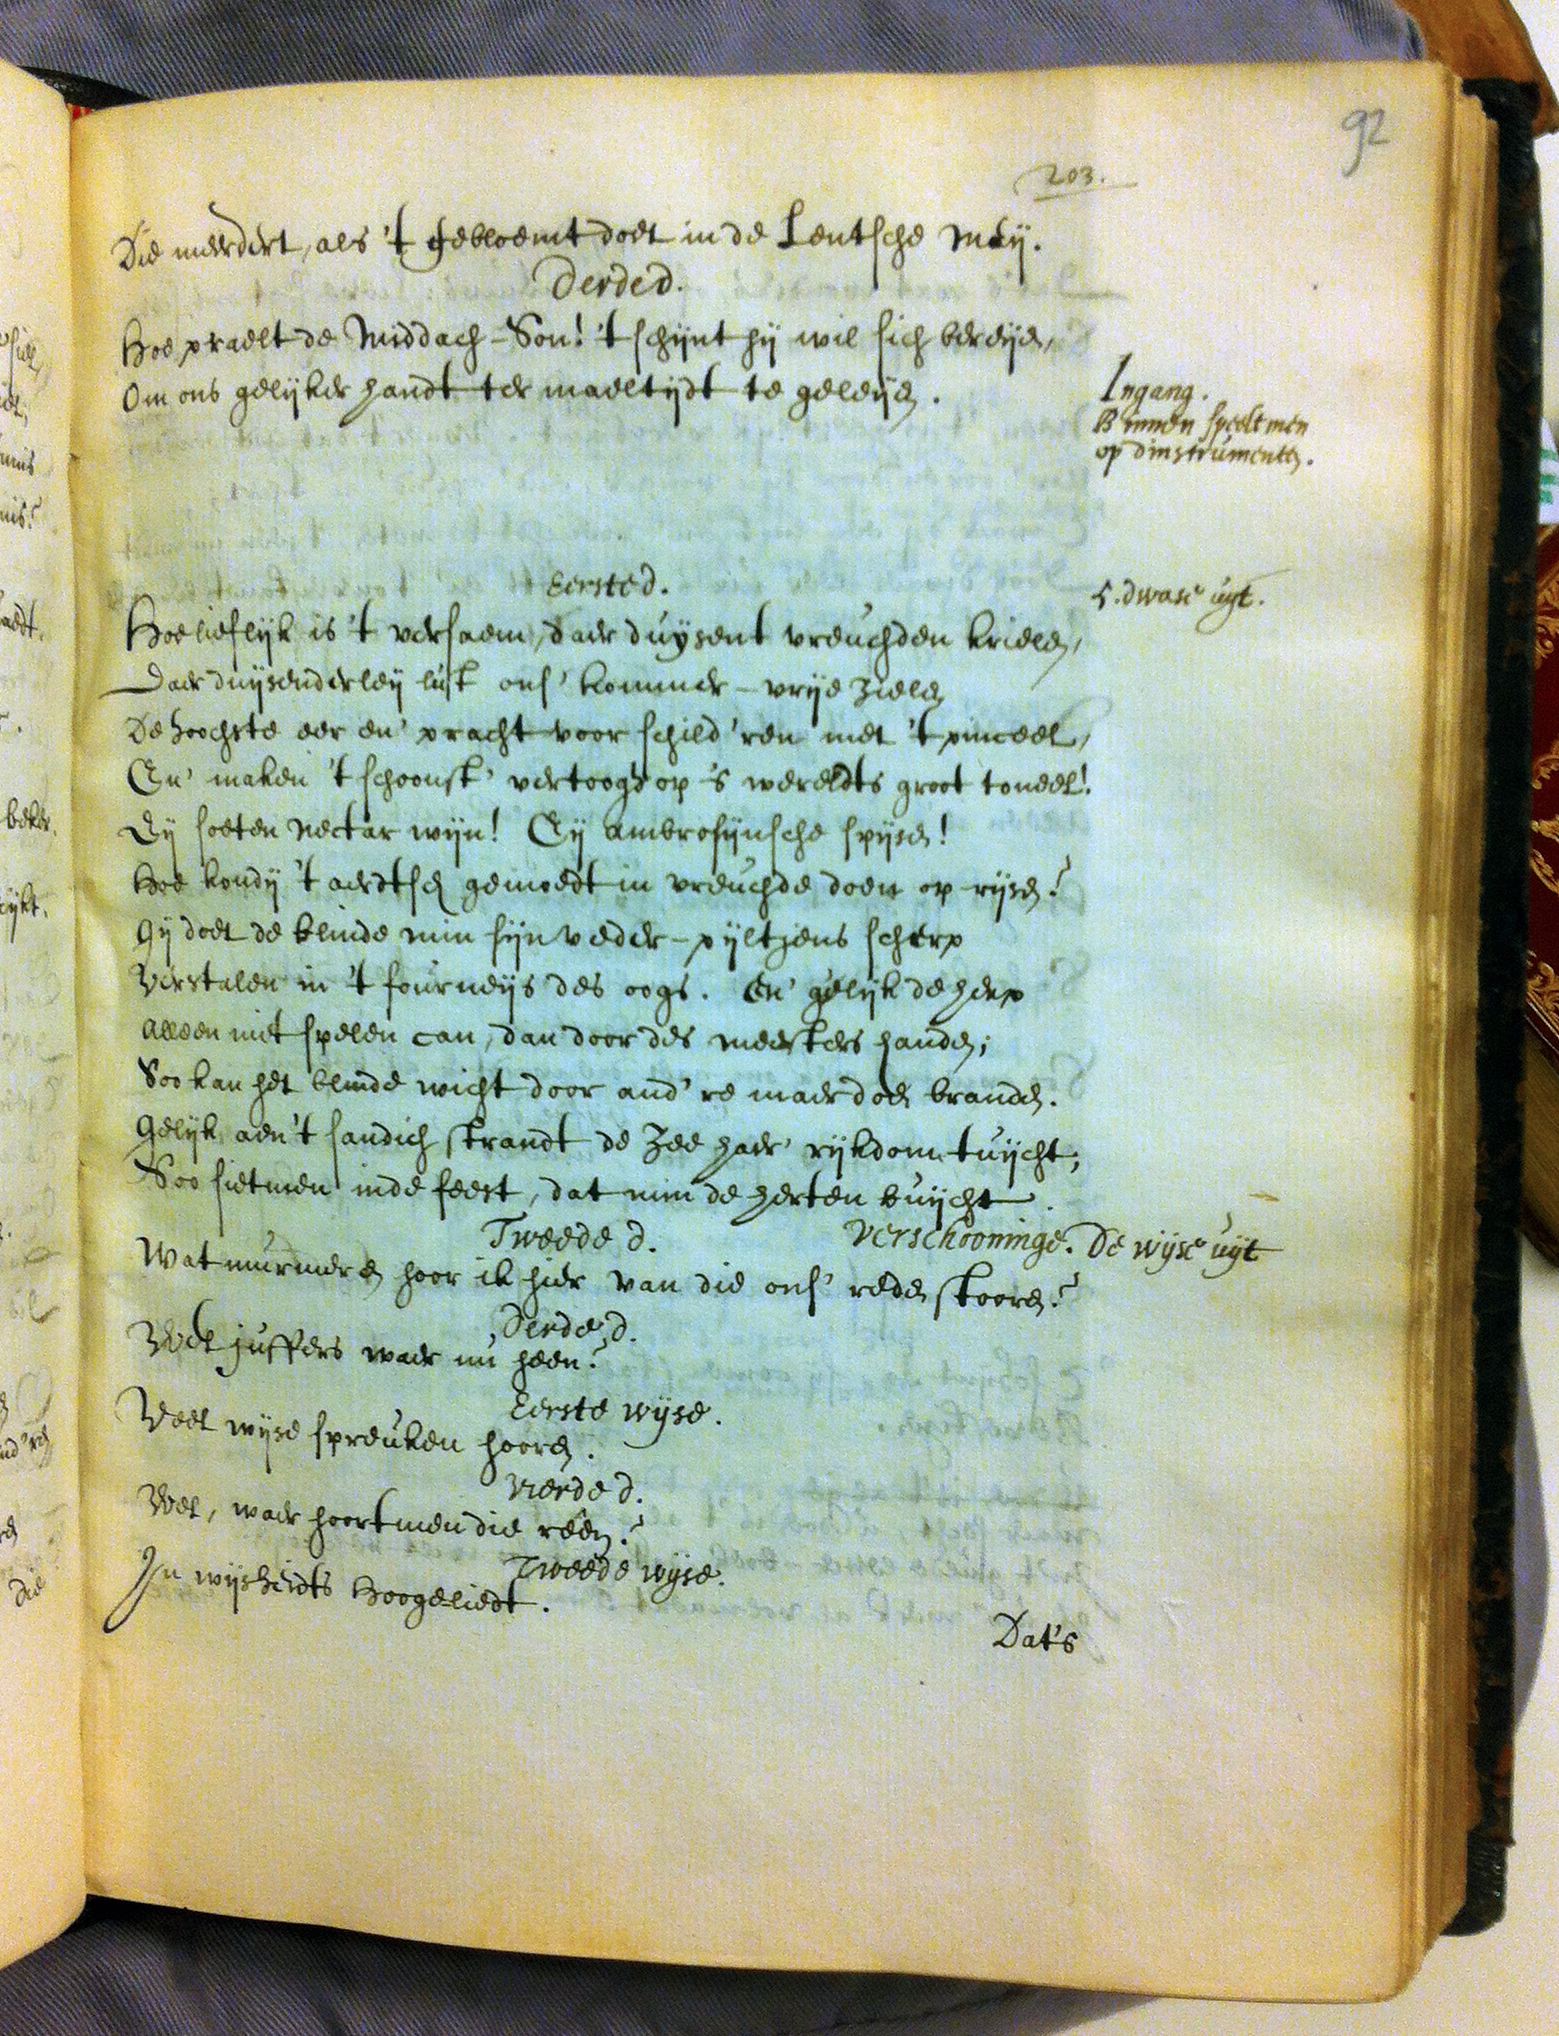 92
203.
Die meerdert, als 't gebloemt doet in de Lentsche Meij.
Derde d.
Hoe praelt de Middach-Son! 't schijnt hij wil sich bereijen,
Om ons gelijker handt ter maeltijdt te geleijen.
Ingang.
Binnen speelt men
op dinstrumenten.
Eerste d.
5. dwase uijt.
Hoe lieflijk is 't versaem, daer duijsent vreuchden krielen,
Daer duijsenderleij lust ons' kommer-vrije zielen
De hoochste eer en' pracht voor schild'ren met 't pinceel,
En' maken 't schoonst' vertoogh op 's wereldts groot toneel!
Eij soeten Nectar wijn! Eij ambrosijnsche spijsen!
Hoe kondij 't aerdtsch gemoedt in vreuchde doen op-rijsen?
Gij doet de blinde min sijn veder-pijltjens scherp
Verstalen in 't fourneijs des oogs. En' gelijk de herp
Alleen niet spelen can, dan door des meesters handen;
Soo kan het blinde wicht door and're maer doen branden.
Gelijk aen 't sandich strandt de Zee haer' rijkdom tuijcht;
Soo sietmen inde feest, dat min de herten buijcht.
Tweede d. Verschooninge. De wijse uijt
Wat murmeren hoor ik hier van die ons' reden stooren?
Derde d.
Wel juffers waer nu heen?
Eerste wijse.
Veel wijse spreuken hooren.
Vierde d.
Wel, waer hoortmen die reên?
Tweede wijse.
In wijsheidts hoogeliedt.
Dat's